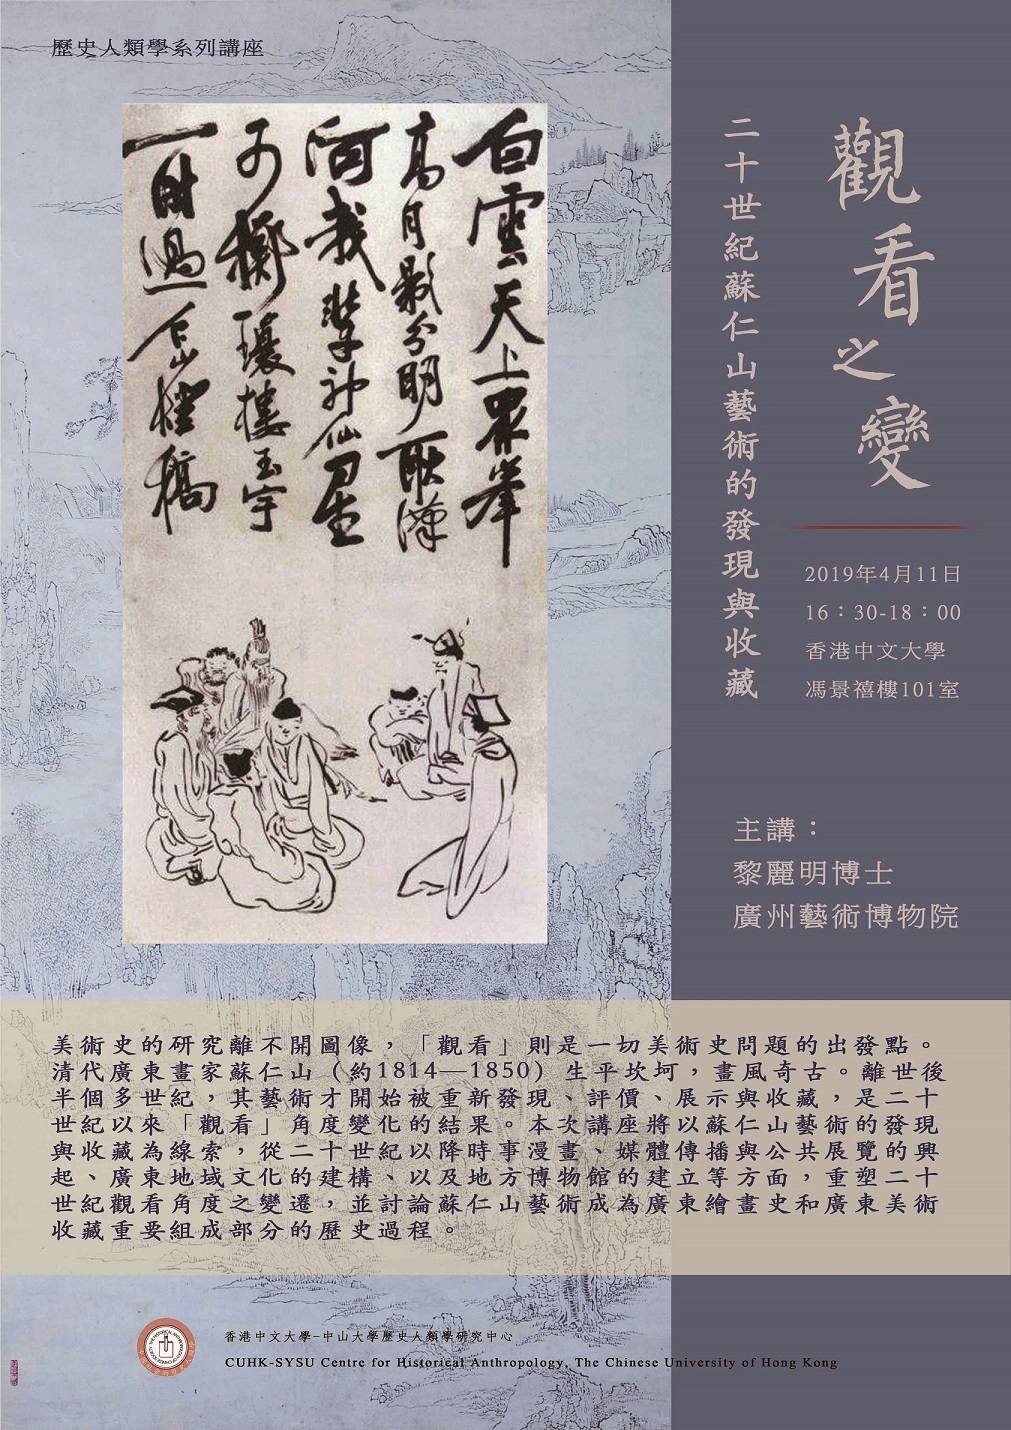 歷史人類學系列講座
觀看之變
二十世紀蘇仁山藝術的發現與收藏
2019年4月11日
16：30-18：00
香港中文大學
馮景禧樓101室
主講：
黎麗明博士
廣州藝術博物院
白雲天上眾峯
高月影分明耿漢
河我挈神仙星
可擲瓊樓玉宇
一時過仁山稿
美術史的研究離不開圖像，「觀看」則是一切美術史問題的出發點。
清代廣東畫家蘇仁山（約1814—1850）生平坎坷，畫風奇古。離世後
半個多世紀，其藝術才開始被重新發現、評價、展示與收藏，是二十
世紀以來「觀看」角度變化的結果。本次講座將以蘇仁山藝術的發現
與收藏為線索，從二十世紀以降時事漫畫、媒體傳播與公共展覽的興
起、廣東地域文化的建構、以及地方博物館的建立等方面，重塑二十
世紀觀看角度之變遷，並討論蘇仁山藝術成為廣東繪畫史和廣東美術
收藏重要組成部分的歷史過程。
香港中文大學-中山大學歷史人類學研究中心
CUHK-SYSU Centre for Historical Anthropology, The Chinese University of Hong Kong